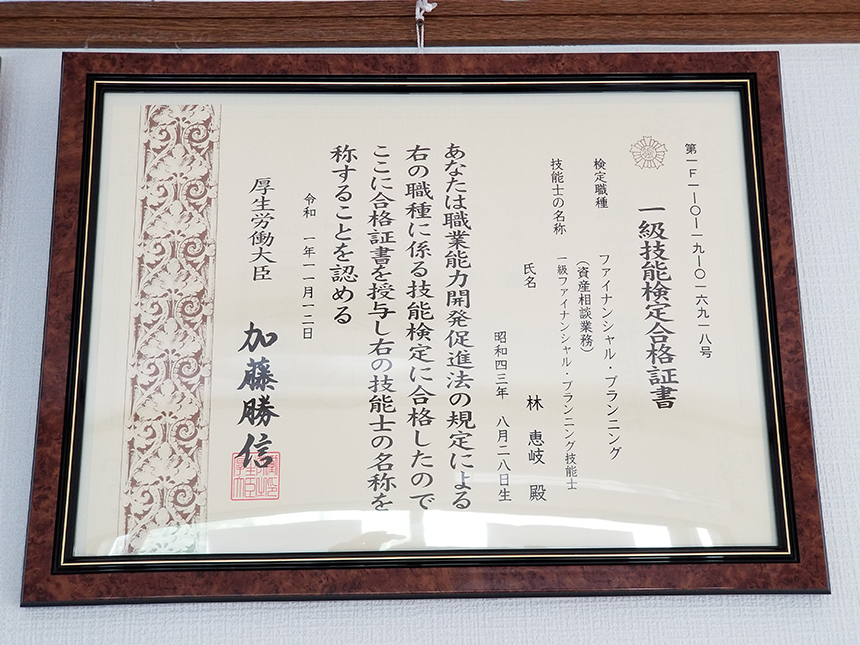 第一F一一〇一一九一〇一六九一八号
一級技能検定合格証書
検定職種 ファイナンシャル・プランニング
（資産相談業務）
技能士の名称 一級ファイナンシャル・プランニング技能士
氏名 林 恵岐 殿
昭和四三年 八月二八日生
あなたは職業能力開発促進法の規定による
右の職種に係る技能検定に合格したので
ここに合格証書を授与し右の技能士の名称を
称することを認める
令和 一年一一月一二日
厚生労働大臣 加藤勝信